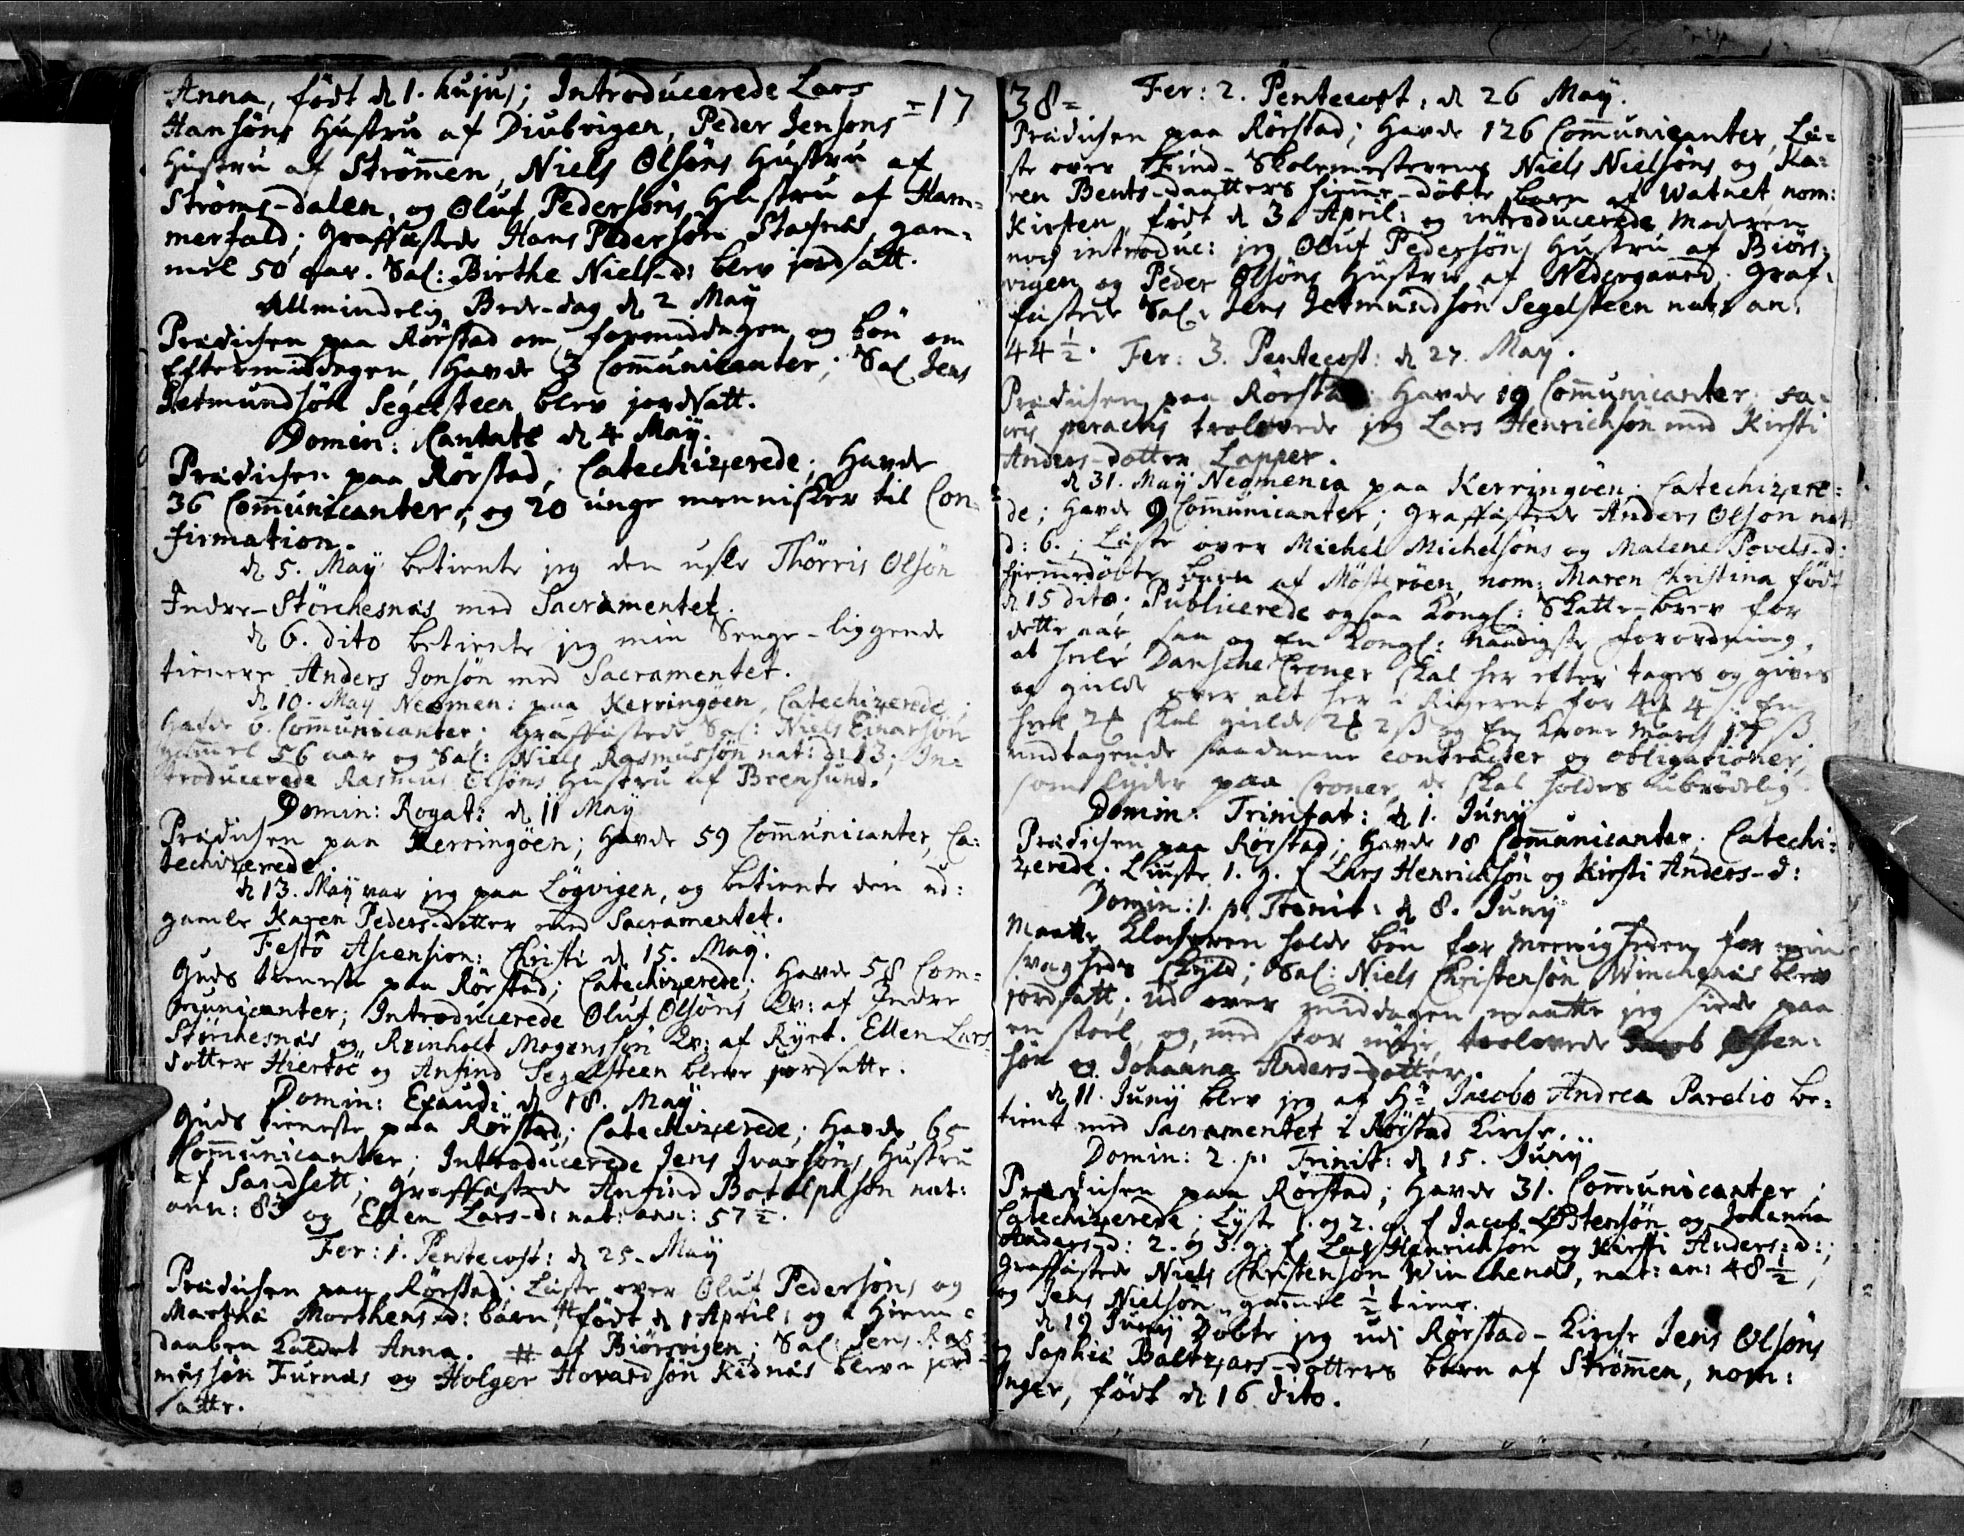 Anna, født d. 1. hujus; Introducerede Lars
=17
Hansøns Hustru af Diubvigen, Peder Jensøns
Hustru af Strømmen, Niels Olsøns Hustru af
Strøms-dalen, og Oluf Pedersøns Hustru af Ham-
merfald; Graffæstede Hans Pedersøn Stafnæs, gam-
mel 50 aar. Sal: Birthe Niels-d: blev jordsatt.
Allmindelig Bede-dag d. 2 May
Prædichen paa Rørstad om formiddagen og bøn om
Eftermiddagen, Havde 3 Communicanter; Sal. Jens
Jetmundsøn Segelsteen blev jordsatt.
Domin: Cantate d. 4 May.
Prædichen paa Rørstad; Catechizerede; Havde
36 Communicanter; og 20 unge mennisker til Con-
firmation.
d. 5. May betiente jeg den usle Thørris Olsøn
Indre-Størchesnæs med Sacramentet.
d. 6. dito betiente jeg min Senge-liggende
tienere Anders Jonsøn med Sacramentet.
d. 10. May Neomen: paa Kerringøen, Catechizerede;
Hafde 6. Communicanter; Graffæstede Sal: Niels Einarsøn
gammel 56 aar og Sal: Niels Rasmussøn nat: d: 13; In-
troducerede Rasmus Olsøns Hustru af Breensund.
Domin: Rogat: d. 11 May
Prædichen paa Kerringøen; Havde 59 Communicanter, Ca-
techizerede.
d. 13. May var jeg paa Løgvigen, og betiente den ud-
gamle Karen Peders-dotter med Sacramentet.
Festô Ascension: Christi d. 15. May.
Guds tieneste paa Rørstad; Catechizerede; Havde 58 Com-
municanter; Introducerede Oluf Olsøns Qv: af Indre
Størchesnæs og Reinholt Mogenssøn Qv: af Ryet. Ellen Lars-
dotter Hiertøe og Anfind Segelsteen bleve jordsatte.
Domin: Exaudi d. 18. May
Guds tieneste paa Rørstad; Catechizerede; Havde 65
Communicanter; Introducerede Jens Ivarsøns Hustru
af Sandsett; Graffæstede Anfind Botolphsøn nat:
ann: 83 og Ellen Lars-d: nat: ann: 57 ½.
Fer: 1. Pentecost: d. 25. May
Prædichen paa Rørstad; Læste over Oluf Pedersøns og
Martha Morthens-d: barn, # født d. 1 April: og i Hiem-
daaben kaldet Anna. # af Biørsvigen; Sal: Jens Ras-
mussøn Furnæs og Holger Hovardsøn Kidnæs bleve jord-
satte.
38=
Fer: 2. Pentecost: d. 26 May.
Prædichen paa Rørstad; Havde 126 Communicanter, Læ-
ste over Find-Skolemesterens Niels Nielsøns og Ka-
ren Bents-daatters hiemme-døbte barn af Watnet, nom:
Kirsten, født d. 3. April: og introducerede Moderen
nock introduc: jeg Oluf Pedersøns Hustru af Biørs-
vigen og Peder Olsøns Hustru af Nedergaard. Graf-
fæstede Sal: Jens Jetmundsøn Segelsteen nat: an:
44 ½. Fer: 3. Pentecost: d. 27. May.
Prædichen paa Rørstad Havde 19 Communicanter; Sa-
cris peractis trolovede jeg Lars Henrichsøn med Kirsti
Anders-dotter Lapper.
d. 31. May Neomenia paa Kerringøen; Catechizere-
de; Havde 9 Communicanter; Graffæstede Anders Olsøn nat:
d: 6.; Læste over Michel Michelsøns og Malene Povels-d:
hiemmedøbte barn af Møsterøen, nom: Maren Christina født
d. 15 dito. Publicerede ogsaa Kongl: Skatte-brev for
dette aar, saa og En Kongl: Naadigste forordning,
at heele Dansche Croner skal her efter tages og gives
og gielde over alt her i Rigerne for 4 4; En
heel 2 skal gielde 2 2 ß og En Krone March 17 ß
undtagende saadanne contracter og obligationer,
som lyder paa Croner, de skal holdes ubrødelig.
Domin: Trinitat: d. 1. Juny
Prædichen paa Rørstad; Havde 18 Communicanter; Catechi-
zerede. Liuste 1. g. f Lars Henrichsøn og Kirsti Anders-d:
Domin: 1. p. Trinit: d. 8. Juny
Maatte Klocheren holde bøn for meenigheden for min
svagheds skyld; Sal: Niels Christensøn Winchenæs blev
jordsatt; Ud over middagen maatte jeg side paa
en stoel, og med stor møje, trolovede Jacob Østen-
søn og Johanna Anders-dotter.
d. 11. Juny blev jeg af Hr. Jacobo Andrea Parelio be-
tient med Sacramentet i Rørstad Kirche...
Domin: 2. p. Trinit: d. 15. Juny
Prædichen paa Rørstad; Havde 31. Communicanter;
Catechizerede; Lyste 1. og 2. g. f Jacob Østensøn og Johanna
Anders-d: 2. og 3. g. f Lars Henrichsøn og Kirsti Anders-d:;
Graffæstede Niels Christensøn Winchenæs, nat: an: 48 ½,
og Jens Nielsøn gammel ½ time.
d. 19 Juny Døbte jeg udi Rørstad-Kirche Jens Olsøns
og Sophie Baltzars-dotters barn af Strømmen, nom:
Inger, født d. 16 dito.